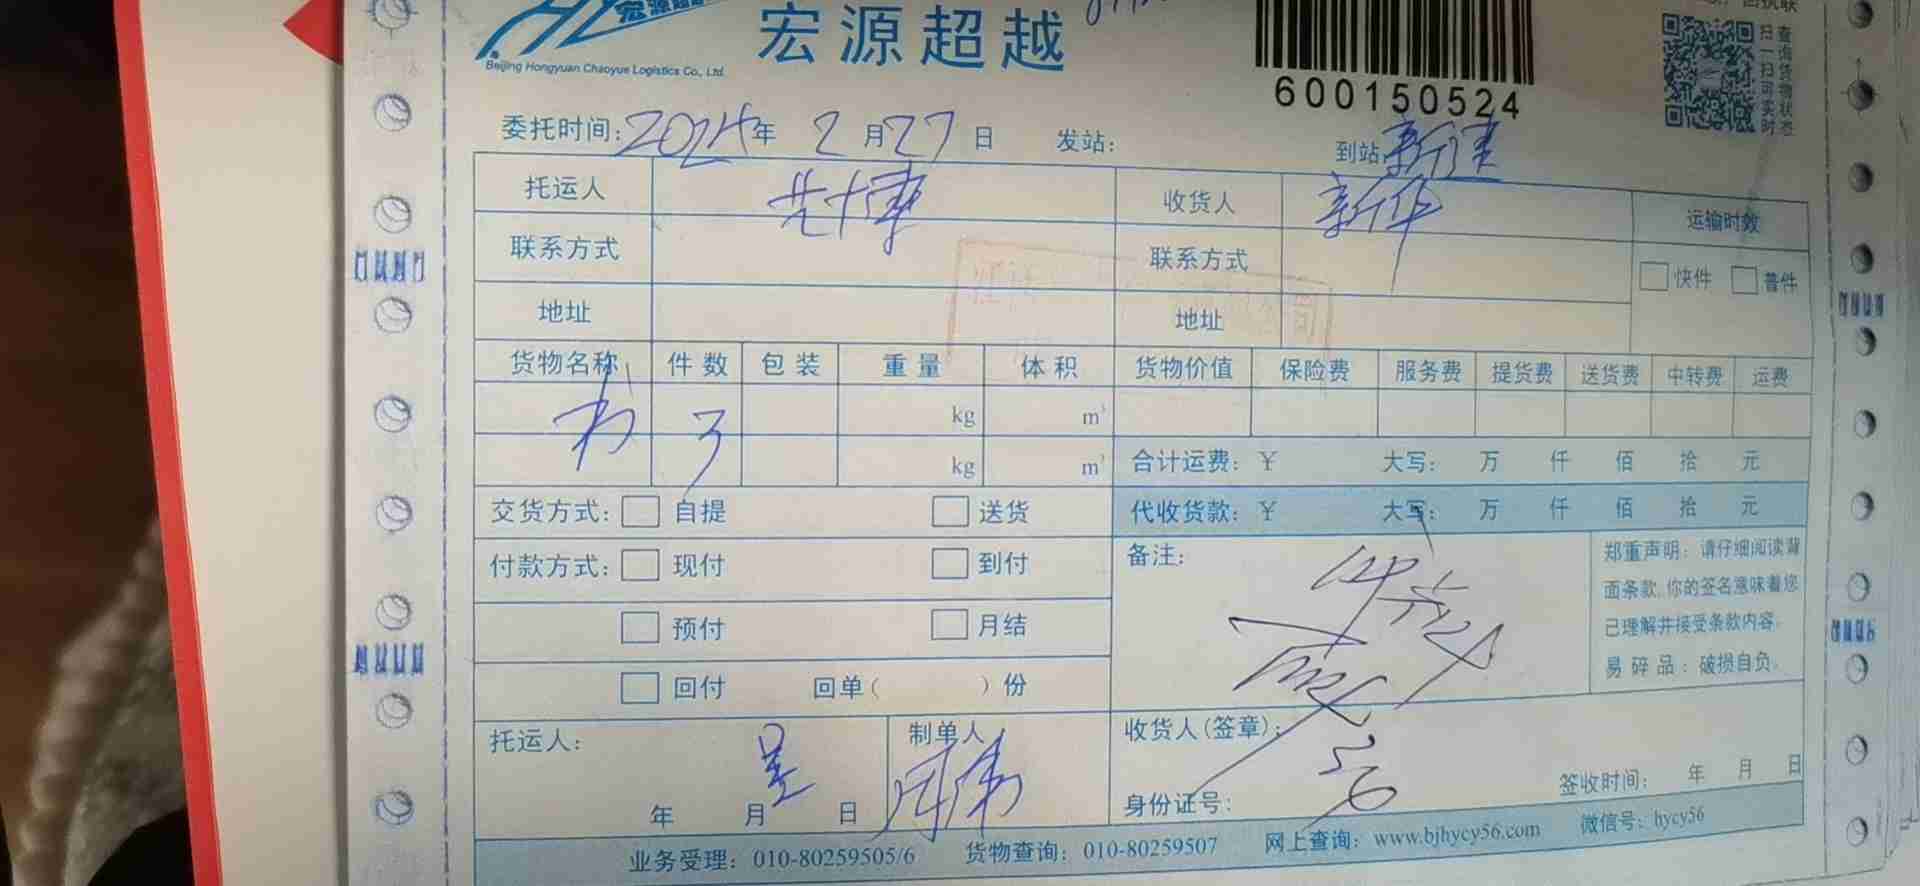 宏源超越
Beijing Hongyuan Chaoyue Logistics Co., Ltd.
600150524
查询货物状态
扫一扫可实时
委托时间: 年 2 月 27 日 发站: 到站: 新疆
托运人 收货人 新华 运输时效
联系方式 联系方式 快件 普件
地址 地址
货物名称 件数 包装 重量 体积 货物价值 保险费 服务费 提货费 送货费 中转费 运费
书 3 kg m³
kg m³ 合计运费: ¥ 大写: 万 仟 佰 拾 元
交货方式: 自提 送货 代收货款: ¥ 大写: 万 仟 佰 拾 元
付款方式: 现付 到付 备注:
预付 月结
回付 回单( )份
郑重声明: 请仔细阅读背
面条款,你的签名意味着您
已理解并接受条款内容。
易碎品: 破损自负。
托运人: 吴 制单人 周伟 收货人(签章):
年 月 日 身份证号: 签收时间: 年 月 日
业务受理: 010-80259505/6 货物查询: 010-80259507 网上查询: www.bjhycy56.com 微信号: hycy56